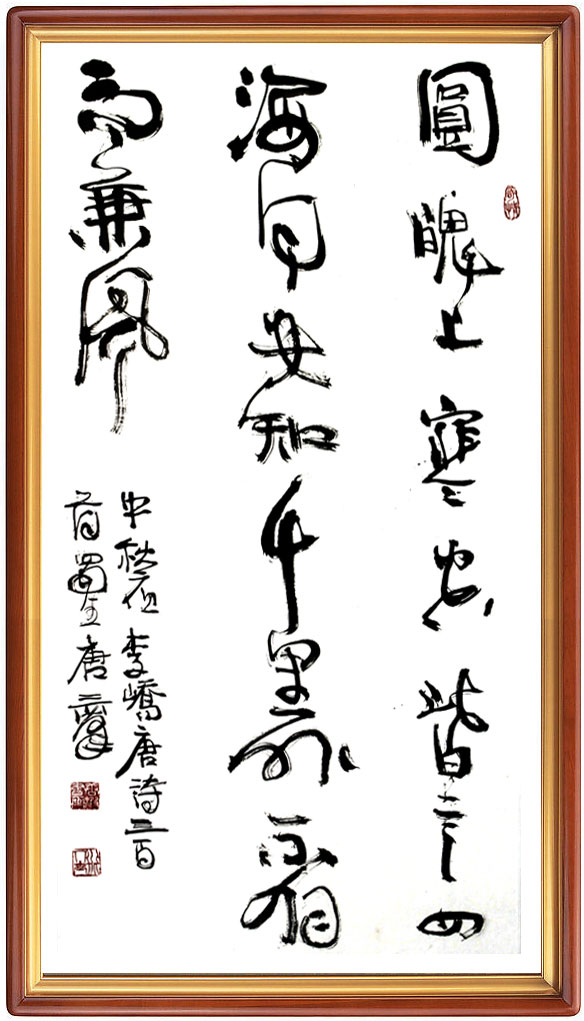 圓魄上寒空皆言四
海同安知千里外不有
雨兼風
中秋夜李嶠唐詩三百
首蜀唐